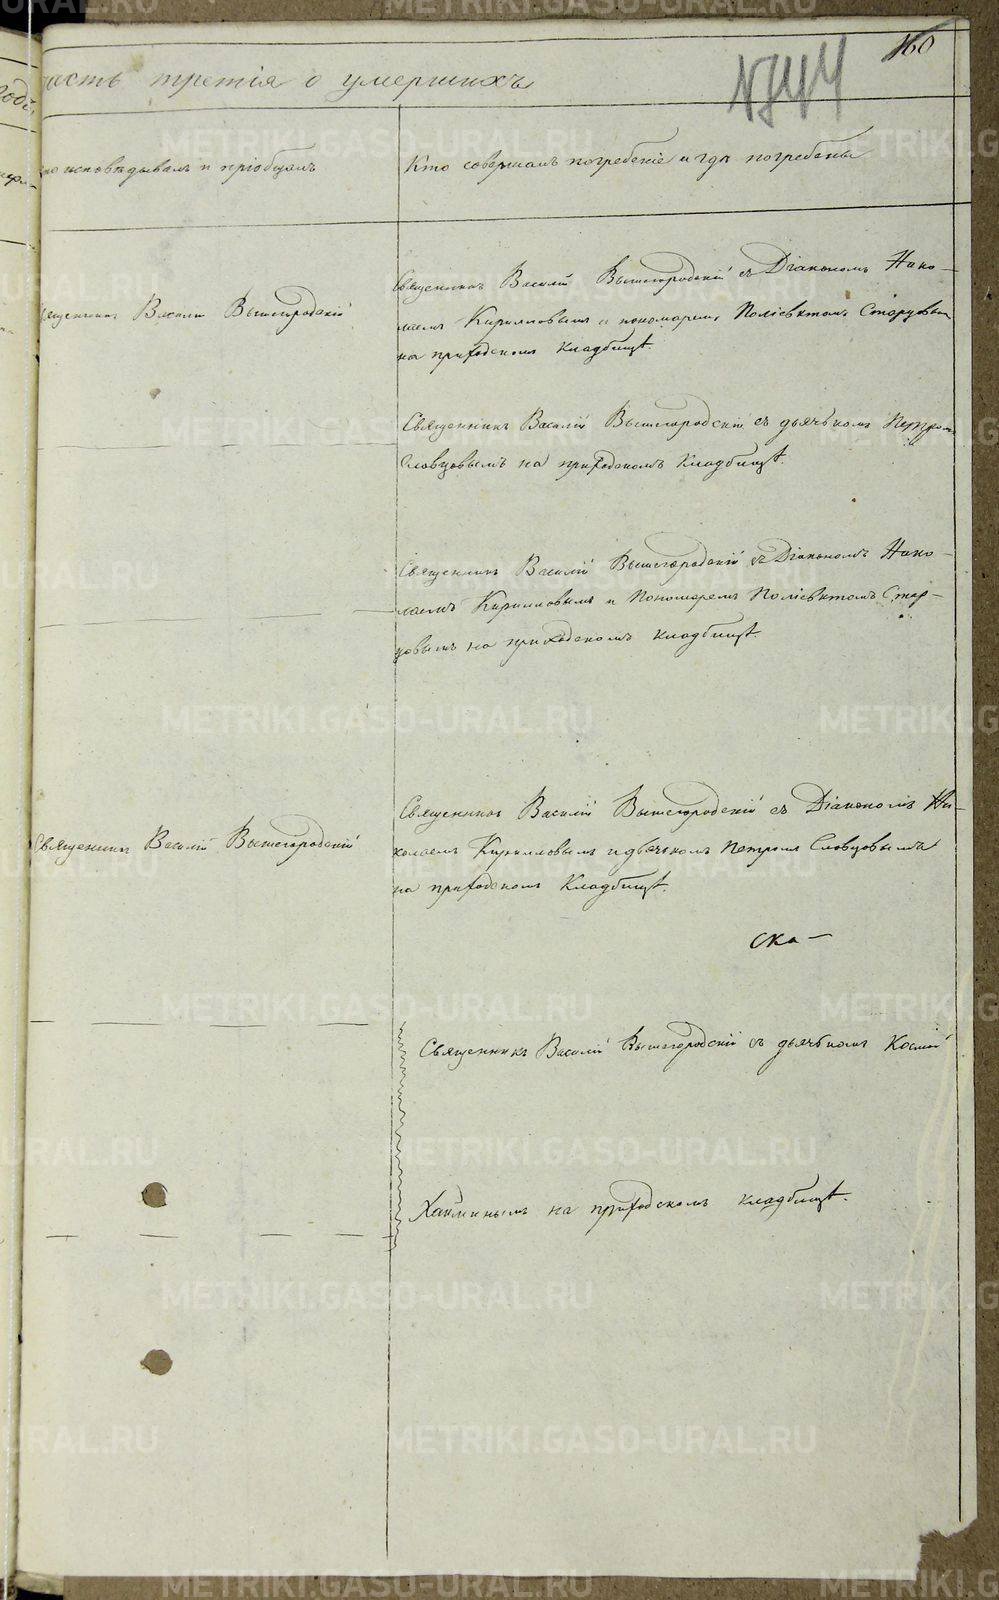 160
часть третія о умершихъ
кто исповѣдывалъ и пріобщалъ
Кто совершалъ погребеніе и гдѣ погребены
Священникъ Василій Вышегородскій съ Діакономъ Нико-
Священникъ Василій Вышегородскій
лаемъ Кирилловымъ и пономаремъ Поліевктомъ Старцовымъ
на приходскомъ кладбищѣ.
Священникъ Василій Вышегородскій съ дьячкомъ Петромъ
Словцовымъ на приходскомъ кладбищѣ.
Священникъ Василій Вышегородскій съ Діакономъ Нико-
лаемъ Кирилловымъ и Пономаремъ Поліевктомъ Стар-
цовымъ на приходскомъ кладбищѣ
Священникъ Василій Вышегородскій съ Діакономъ Ни-
Священникъ Василій Вышегородскій
колаемъ Кирилловымъ и дьячкомъ Петромъ Словцовымъ
на приходскомъ Кладбищѣ.
ска-
Священникъ Василій Вышегородскій съ дьячкомъ Космой
на приходскомъ кладбищѣ.
METRIKI.GASO-URAL.RU